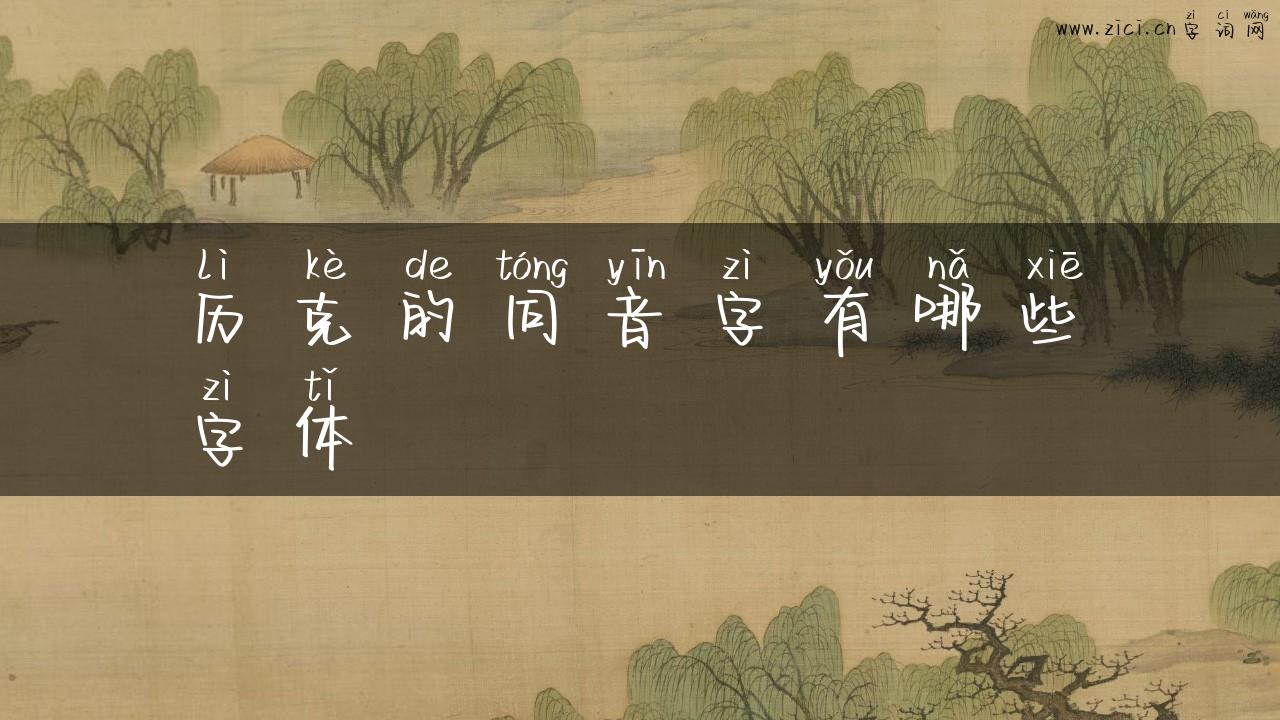 zì cí wǎng
www.zici.cn 字 词 网
lì kè de tóng yīn zì yǒu nǎ xiē
历 克 的 同 音 字 有 哪 些
zì tǐ
字 体